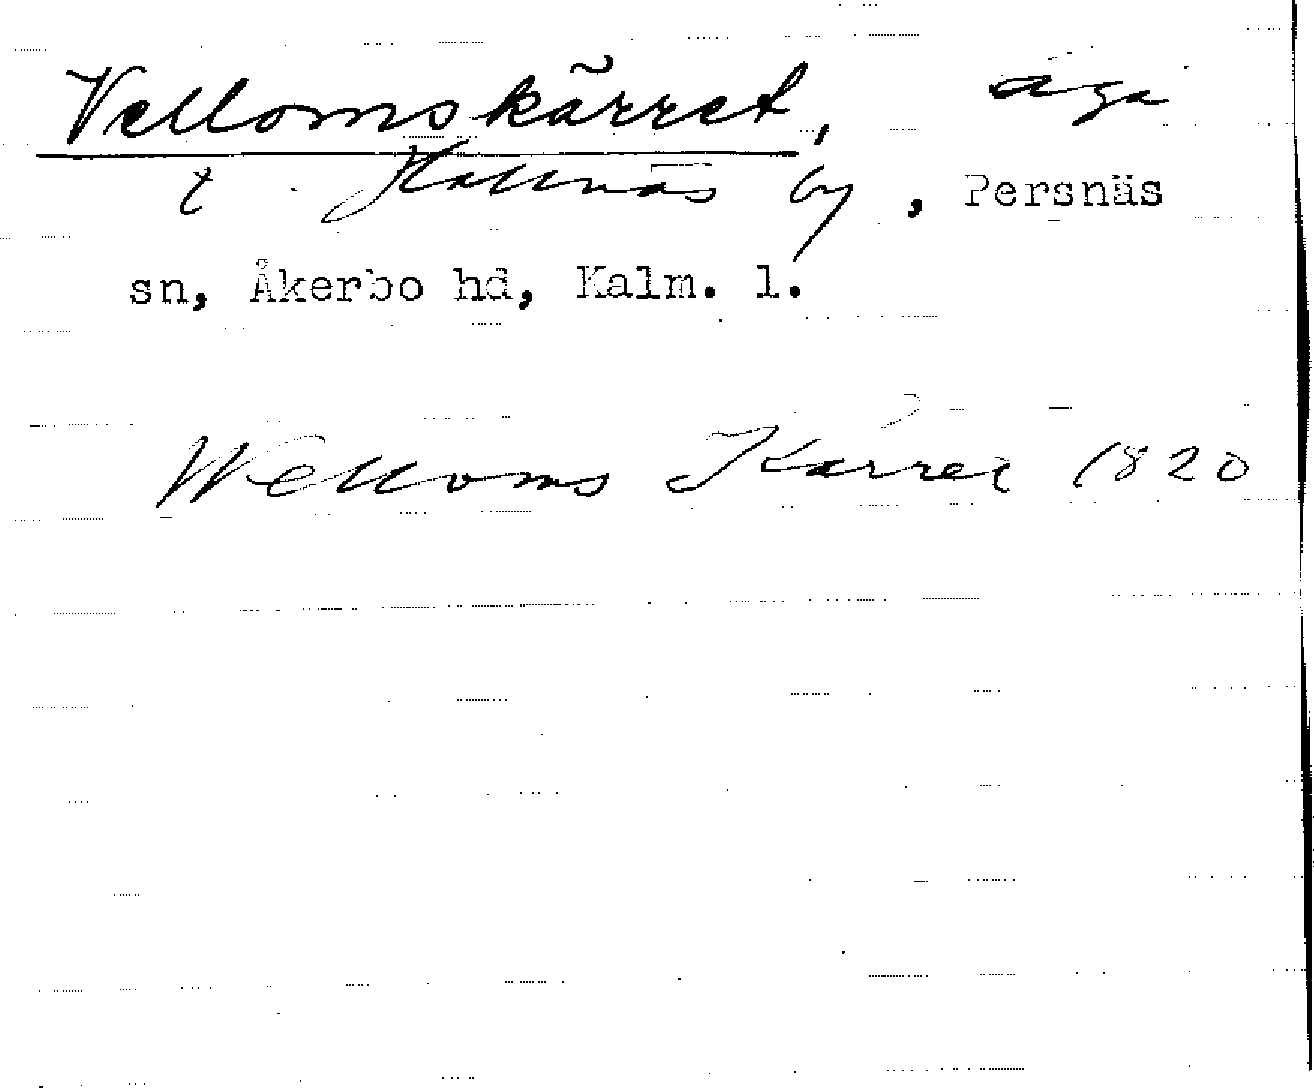 Vellomskärret, äga
t Hallnäs by, Persnäs
sn, Åkerbo hd, Kalm. l.
Welloms Kärret 1820